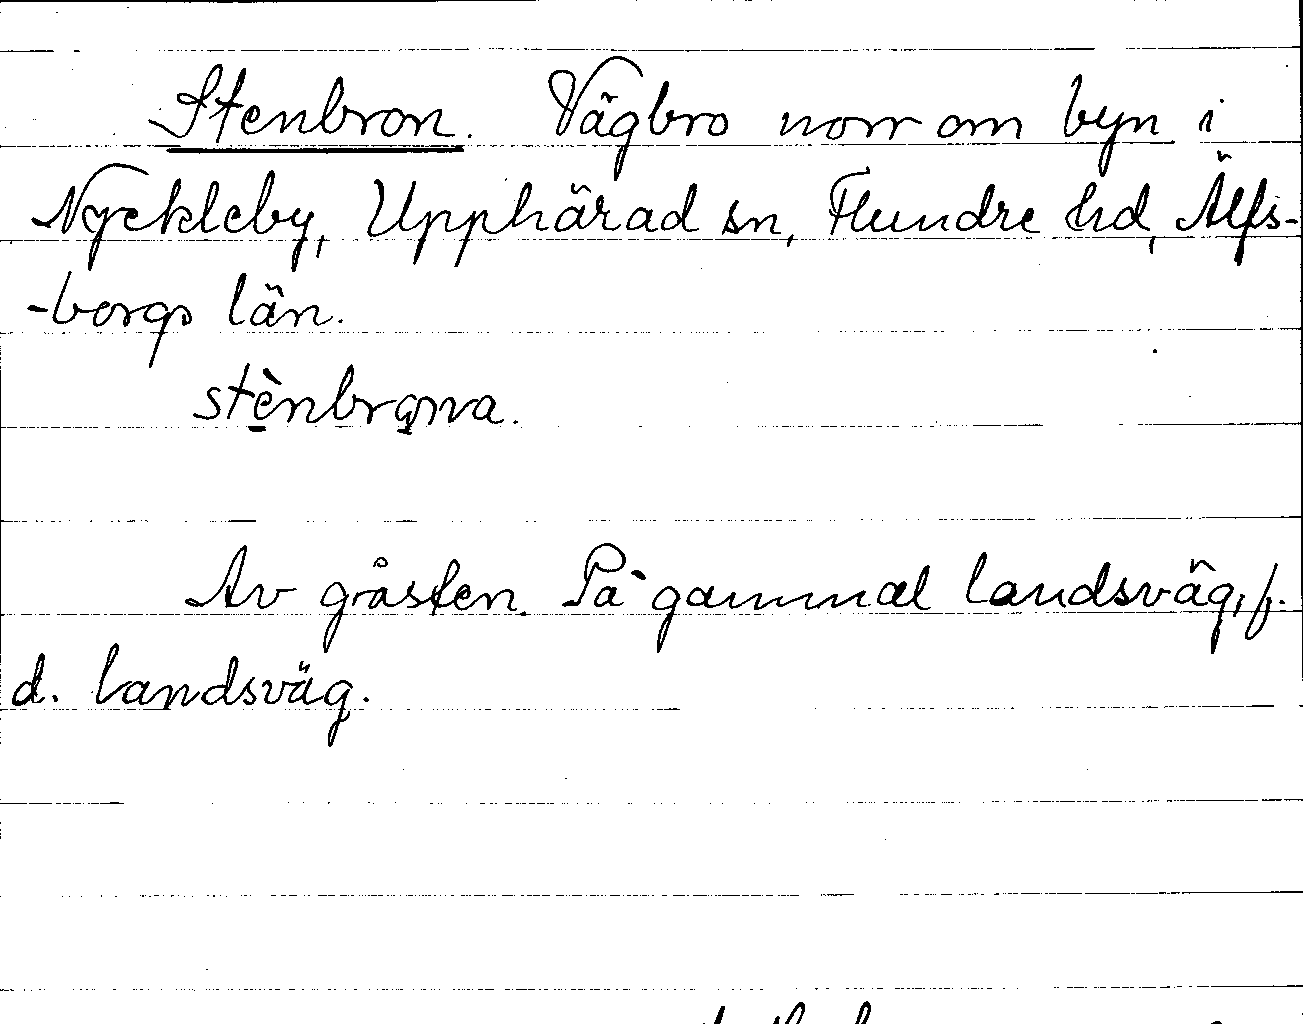 Stenbron. Vägbro norr om byn i
Nyckleby, Upphärad sn, Flundre hd, Älfs-
-borgs län.
stènbrona.
Av gråsten. På gammal landsväg, f.
d. landsväg.